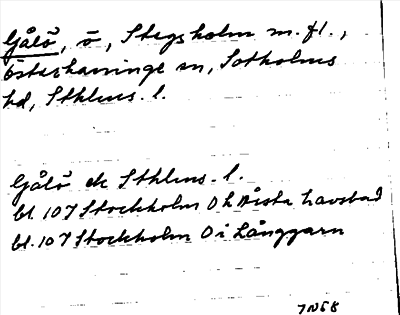 Gålö, ö, Stegsholm m.fl.,
Österhaninge sn, Sotholms
hd, Sthlms. l.
Gålö ek Sthlms. l.
bl. 107 Stockholm O h Årsta havsbad
bl. 107 Stockholm O i Långgarn
7N68